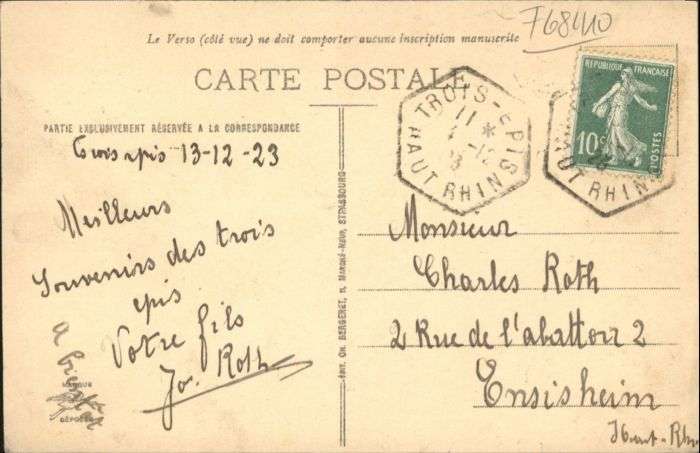 F68410
Le Verso (côté vue) ne doit comporter aucune inscription manuscrite
CARTE POSTALE
PARTIE EXCLUSIVEMENT RÉSERVÉE A LA CORRESPONDANCE
Trois epis 13-12-23
Meilleurs
Souvenirs des trois
epis
Votre fils
Jos. Roth
A bientôt
MARQUE
DÉPOSÉE
ÉDIT. CH. BERGERET, MARCHÉ-NEUF, STRASBOURG
TROIS-EPIS
11 *
-12
23
HAUT RHIN
RÉPUBLIQUE FRANÇAISE
10c
POSTES
UT RHIN
Monsieur
Charles Roth
2 Rue de l'abattoir 2
Ensisheim
Haut-Rhin